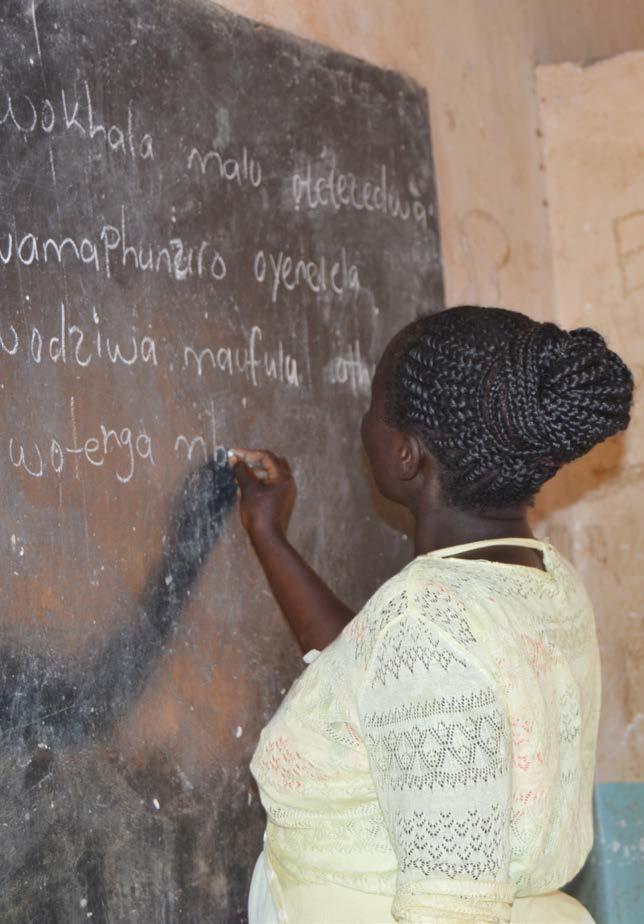 wokhala malo otetezedwa.
wamaphunziro oyenelela
wodziwa maufulu oth
wotenga mb